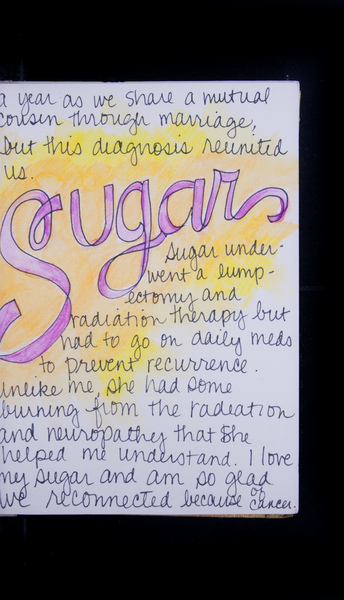 a year as we share a mutual
cousin through marriage,
but this diagnosis reunited
us.
Sugar
Sugar under-
went a lump-
ectomy and
radiation therapy but
had to go on daily meds
to prevent recurrence.
unlike me, she had some
burning from the radiation
and neuropathey that she
helped me understand. I love
my Sugar and am so glad
we reconnected because of cancer.